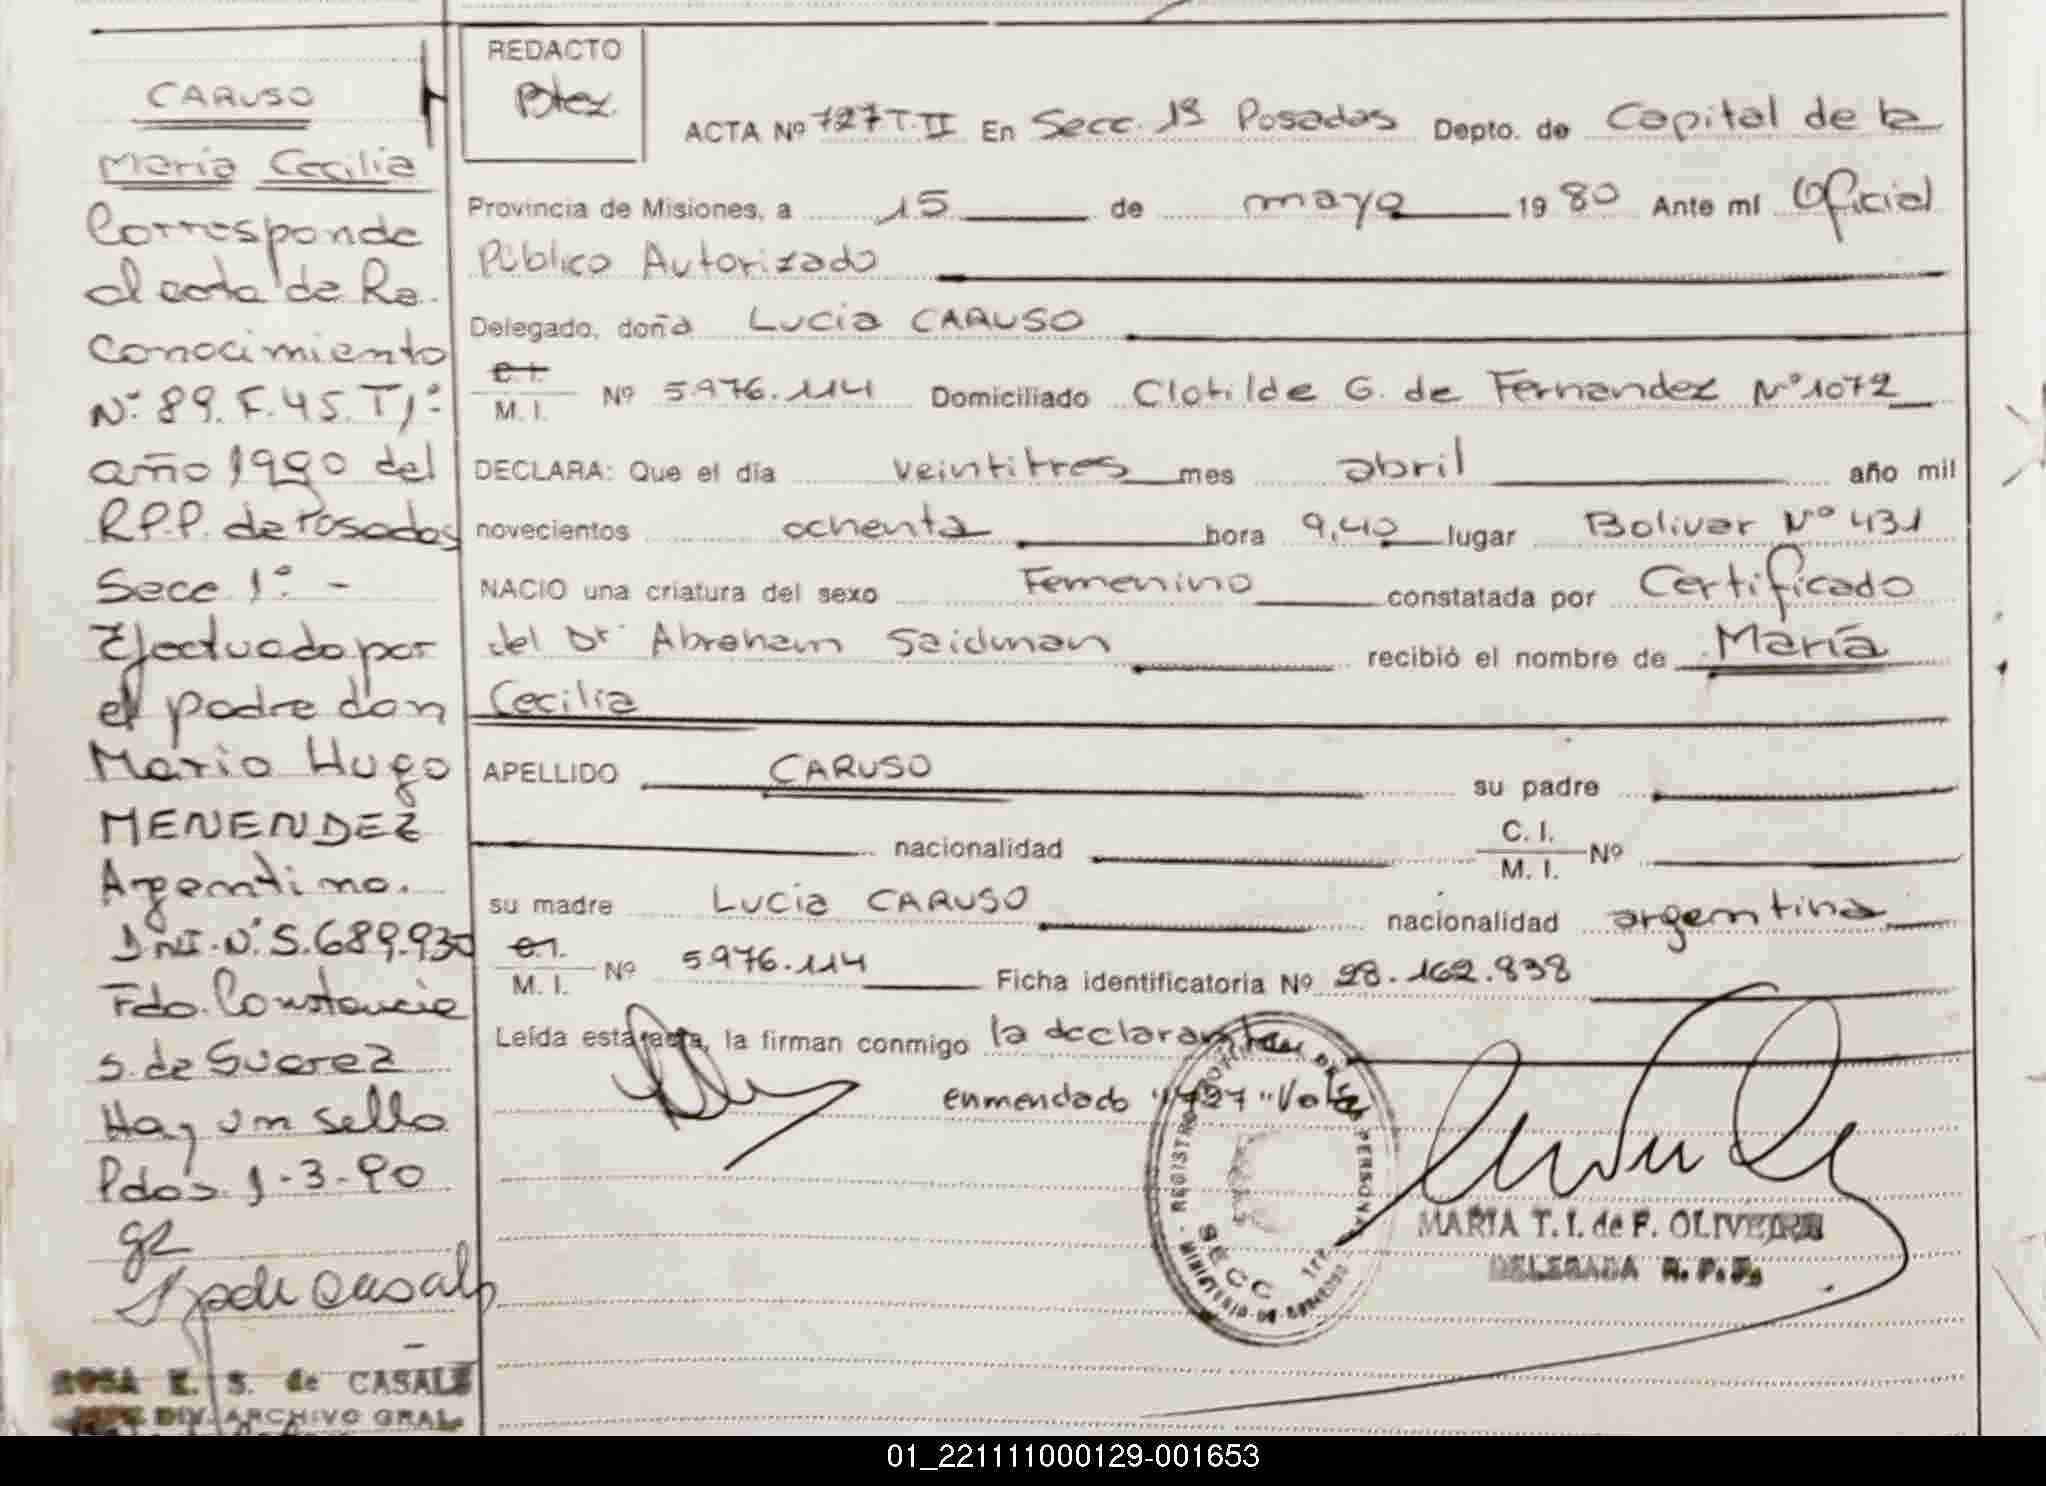 CARUSO
María Cecilia
Corresponde
al acta de Re.
conocimiento
Nº 89. F. 45. T 1º
año 1990 del
R.P.P. de Posadas
Secc 1º. -
Efectuado por
el padre don
Mario Hugo
MENENDEZ
Argentino.
DNI. Nº 5.689.930
Fdo. Constancia
S. de Suarez
Hay un sello
Pdas. 1-3-90
ROSA E. S. de CASALS
JEFE DIV. ARCHIVO GRAL.
REDACTO
ACTA Nº 727 T. II En Secc. 1ª Posadas Depto. de Capital de la
Provincia de Misiones, a 15 de mayo 19 80 Ante mí Oficial
Público Autorizado
Delegado, doña Lucia CARUSO
C.I.
M. I. Nº 5.976.114 Domiciliado Clotilde G. de Fernandez Nº 1072
DECLARA: Que el día veintitres mes abril año mil
novecientos ochenta hora 9,40 lugar Bolivar Nº 431
NACIO una criatura del sexo Femenino constatada por Certificado
del Dr Abraham Saidman recibió el nombre de María
Cecilia
APELLIDO CARUSO su padre
nacionalidad C. I.
M. I. Nº
su madre Lucia CARUSO nacionalidad argentina
C.I.
M. I. Nº 5.976.114 Ficha identificatoria Nº 28.162.838
Leída esta acta, la firman conmigo la declarante
enmendado "727" Vale
REGISTRO PROVINCIAL DE LAS PERSONAS
SECC 1ra
MINISTERIO DE GOBIERNO
MARIA T. I. de F. OLIVEIRA
DELEGADA R. P. P.
01_221111000129-001653